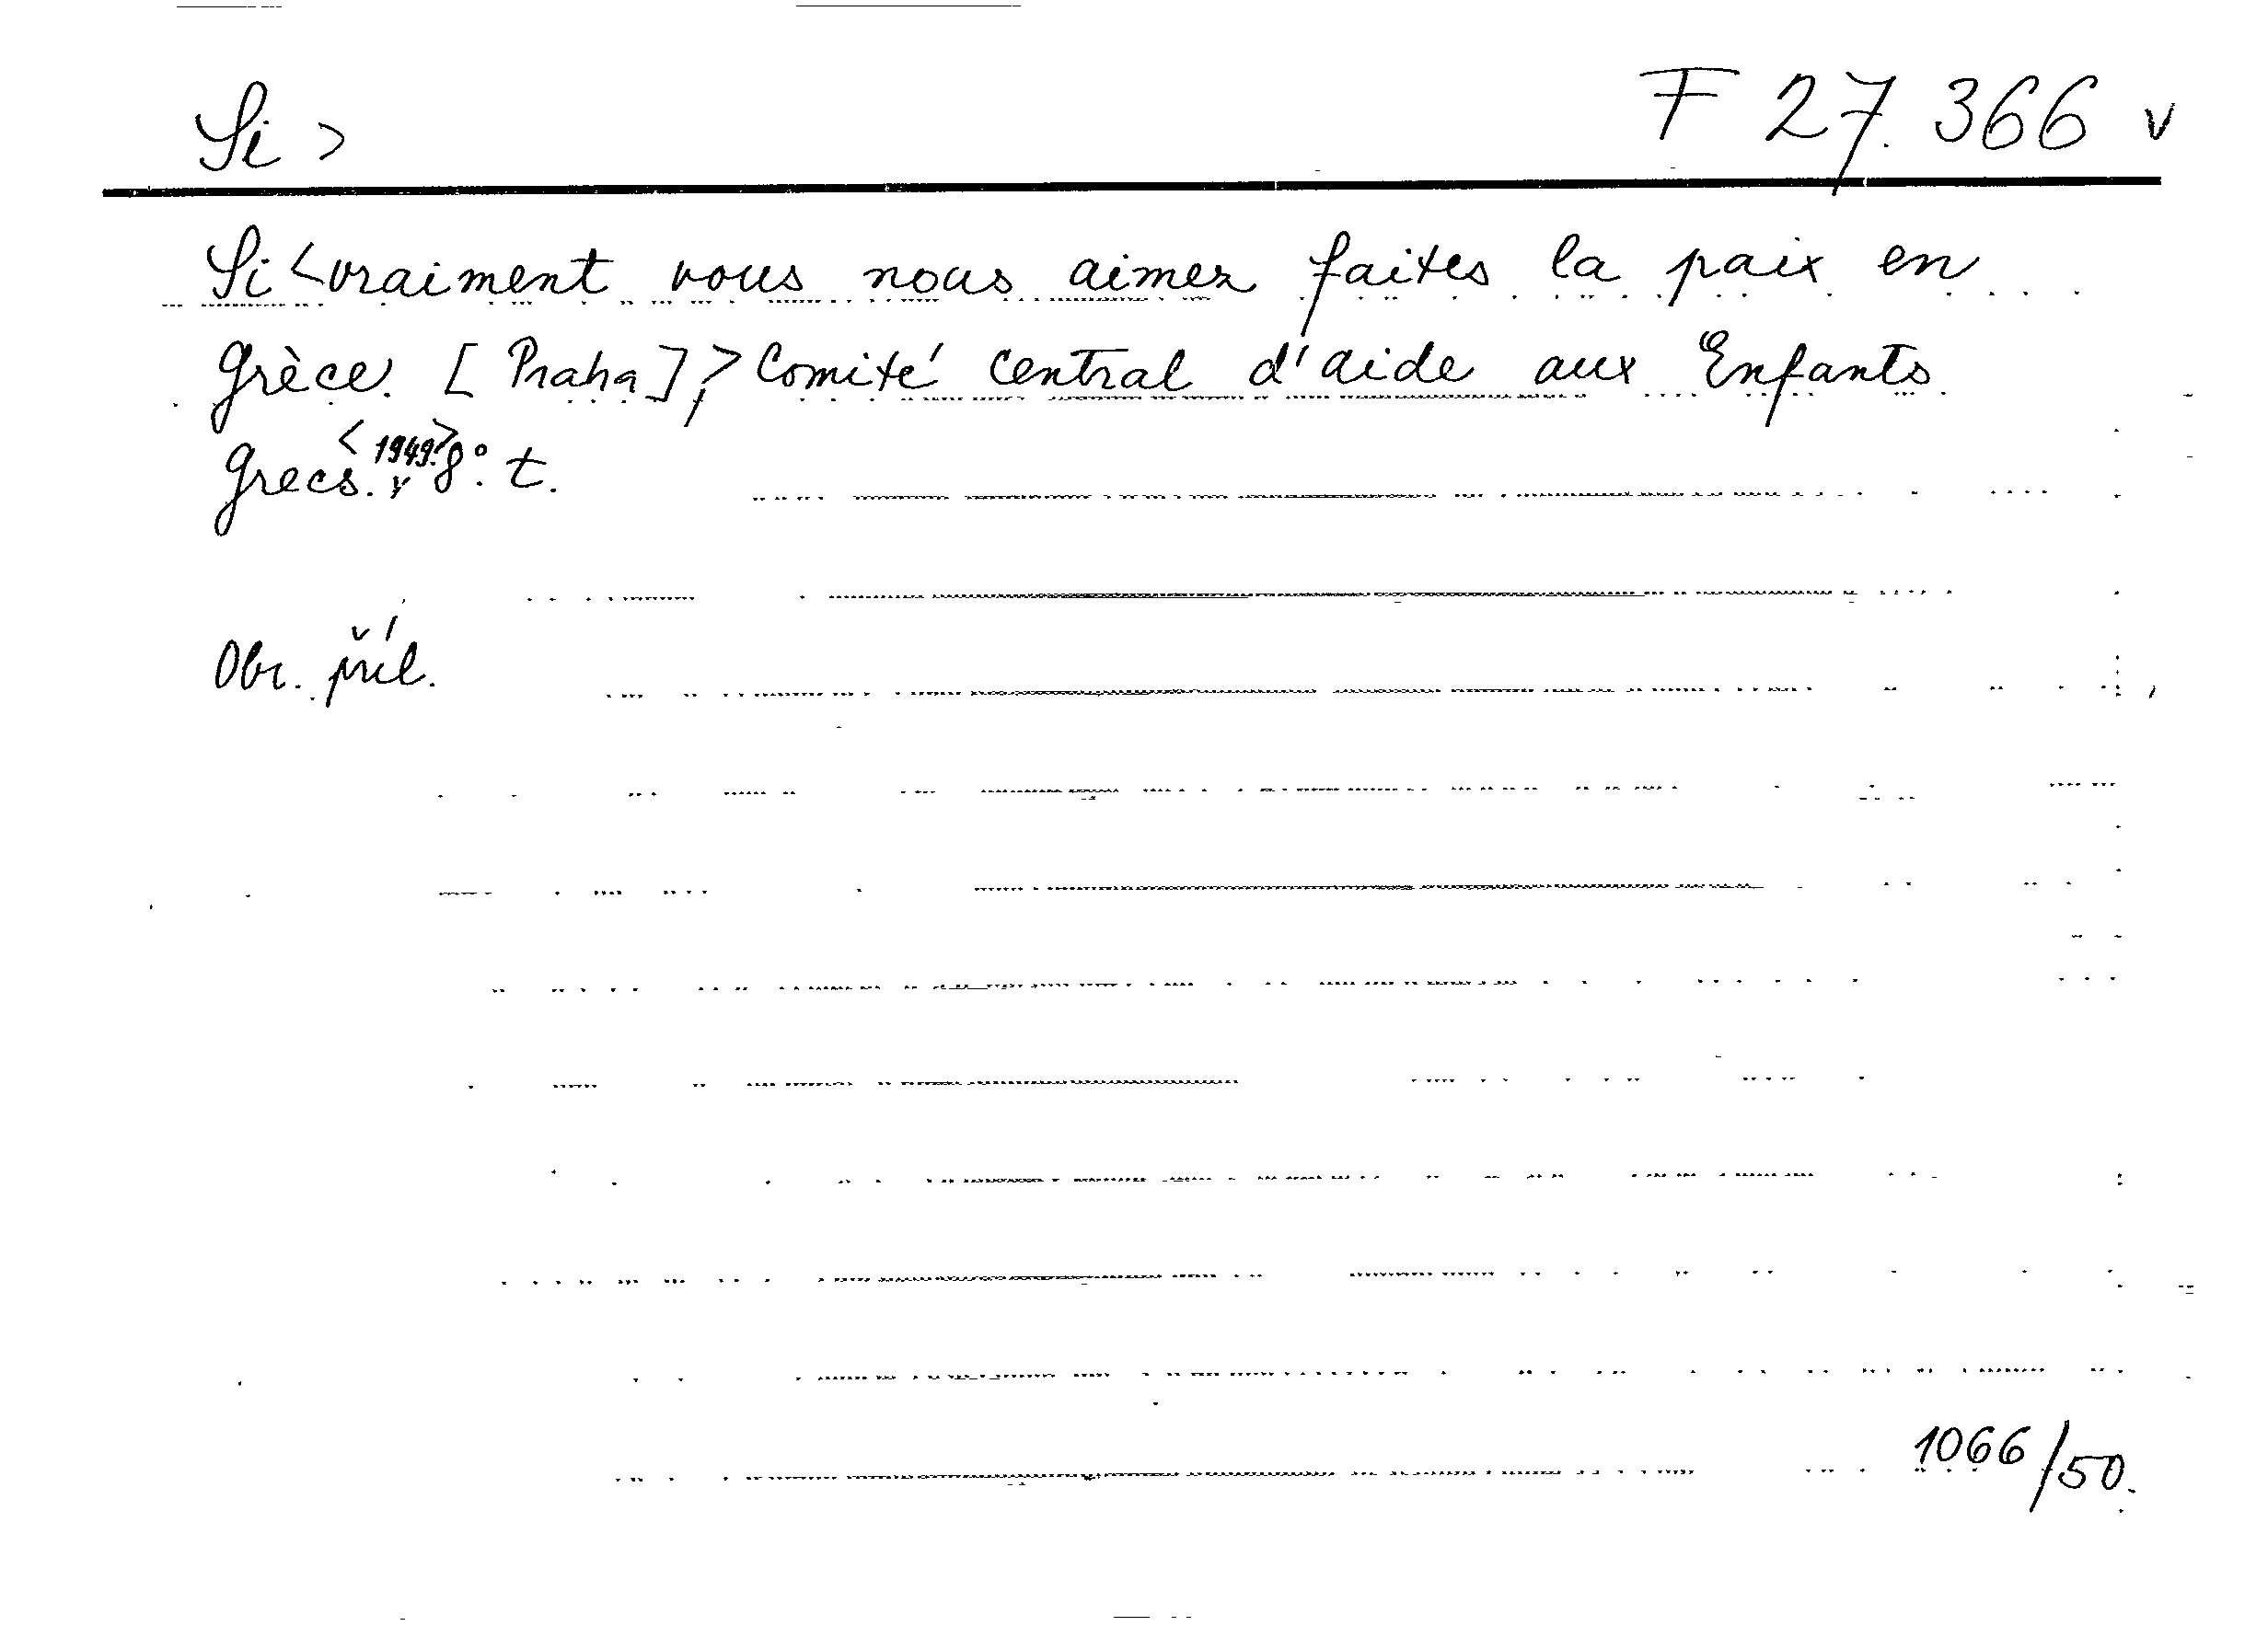 Si > F 27.366 v
Si <vraiment vous nous aimez faites la paix en
Grèce. [Praha], > Comité central d'aide aux Enfants
Grecs. <1949.> 8°. t.
Obr. příl.
1066/50.